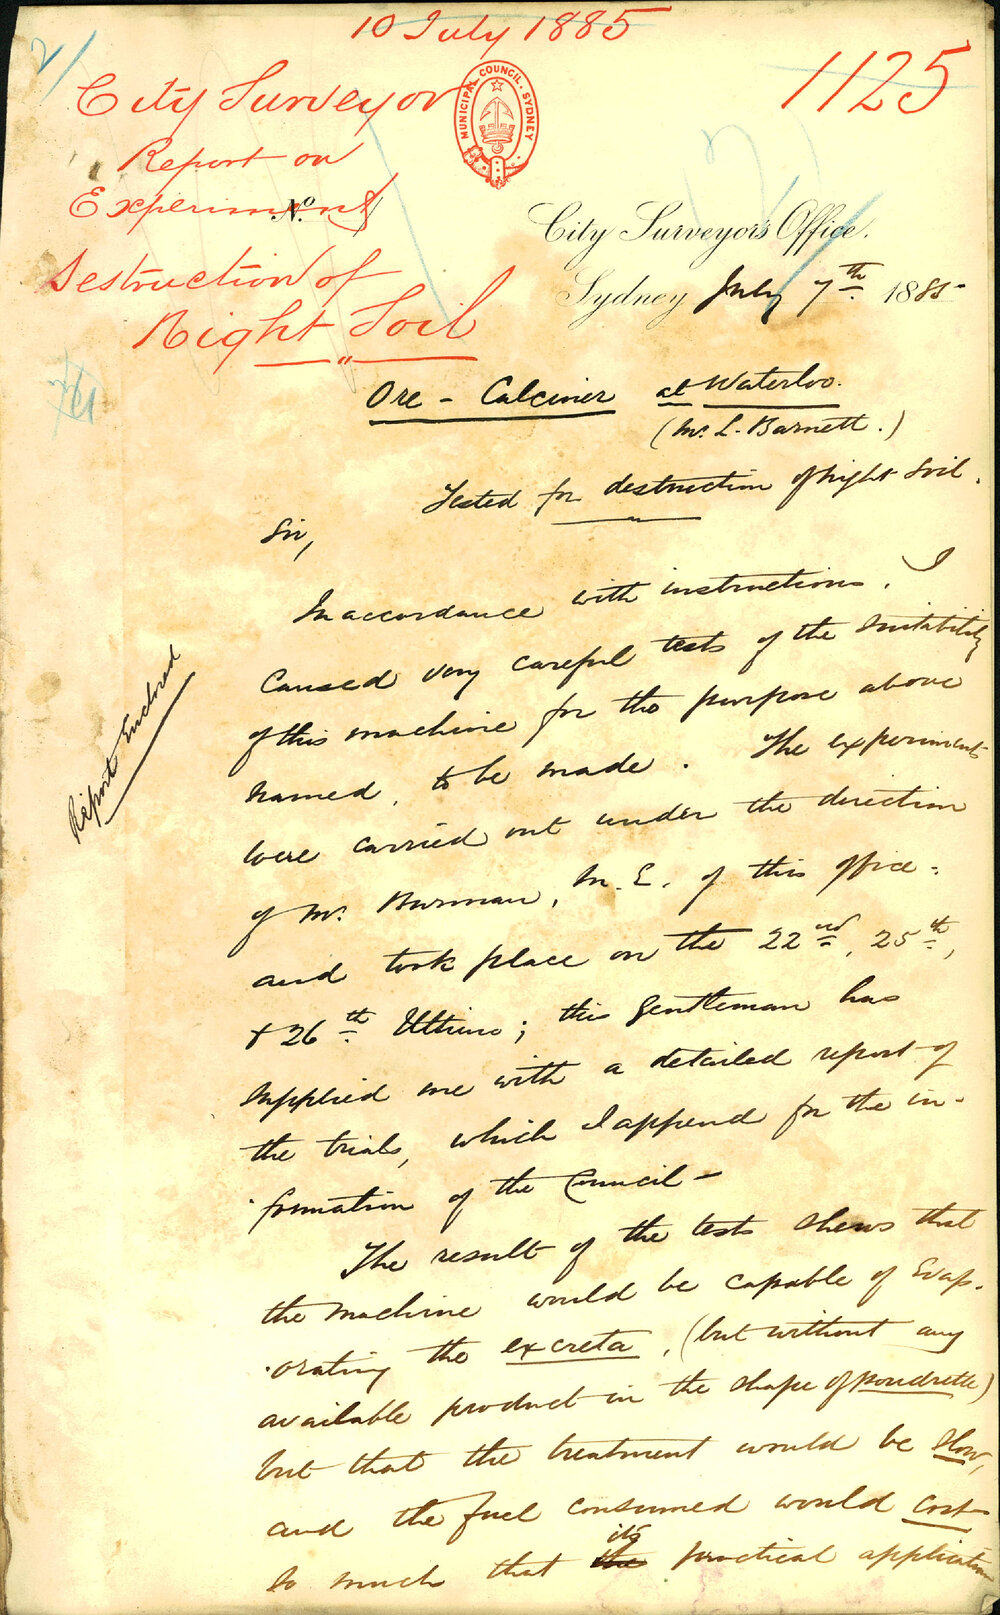 10 July 1885
2/
1125
City Surveyor
Report on
Experiments
Destruction of
Night Soil
MUNICIPAL COUNCIL. SYDNEY
No.
City Surveyor's Office.
Sydney July 7th 1885
Ore - Calciner at Waterloo.
(Mr. L. Barnett.)
Tested for destruction of night soil.
Sir,
In accordance with instructions, I
caused very careful tests of the suitability
of this machine for the purpose above
named, to be made. The experiments
were carried out under the direction
of Mr. Burman, M.E. of this office:
and took place on the 22nd, 25th,
& 26th Ultimo; this gentleman has
supplied me with a detailed report of
the trials, which I append for the in-
formation of the Council -
Report Enclosed
The result of the tests shews that
the machine would be capable of evap-
orating the excreta, (but without any
available product in the shape of poudrette)
but that the treatment would be slow,
and the fuel consumed would cost
so much that the its practical application